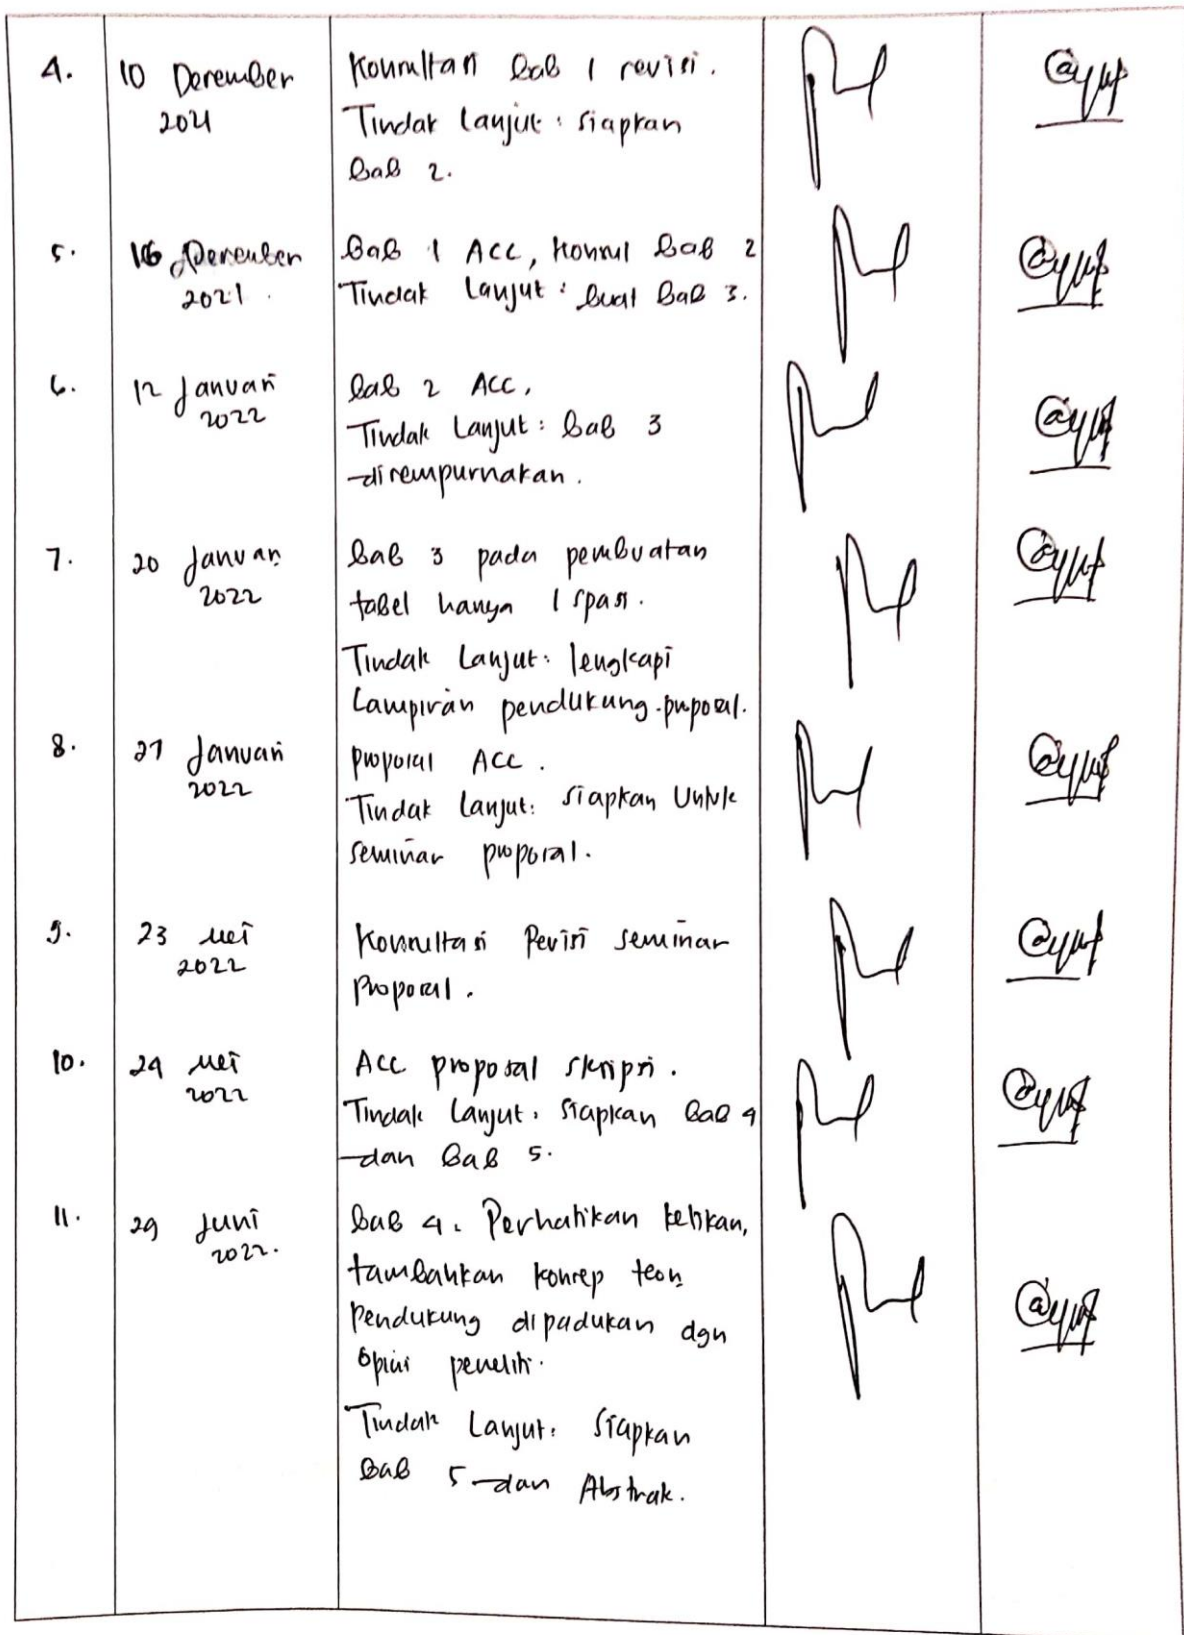 4. 10 Desember Konsultasi Bab 1 revisi.
2021 Tindak Lanjut: siapkan
Bab 2.
5. 16 Desember Bab 1 ACC, Konsul Bab 2
2021. Tindak Lanjut: buat Bab 3.
6. 12 Januari Bab 2 ACC,
2022 Tindak Lanjut: Bab 3
disempurnakan.
7. 20 Januari Bab 3 pada pembuatan
2022 tabel hanya 1 spasi.
Tindak Lanjut: lengkapi
Lampiran pendukung proposal.
8. 27 Januari proposal ACC.
2022 Tindak Lanjut: siapkan Untuk
seminar proposal.
9. 23 Mei Konsultasi Revisi seminar
2022 Proposal.
10. 24 Mei ACC proposal skripsi.
2022 Tindak Lanjut: siapkan Bab 4
dan Bab 5.
11. 29 Juni Bab 4. Perhatikan ketikan,
2022. tambahkan konsep teori
Pendukung dipadukan dgn
opini peneliti.
Tindak Lanjut: Siapkan
Bab 5 dan Abstrak.